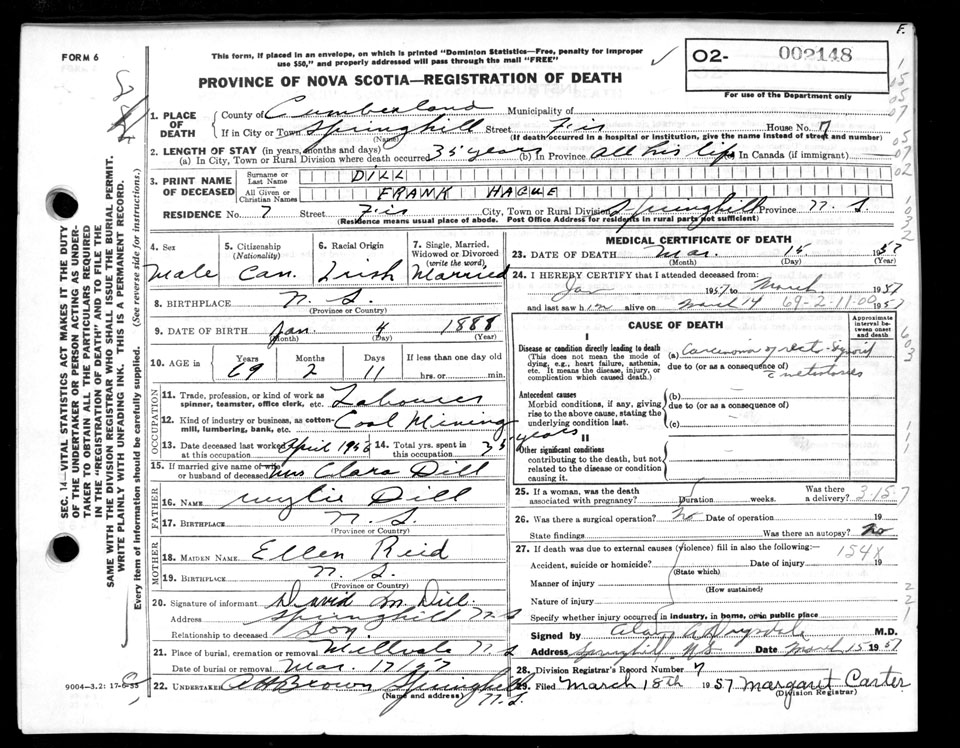 F.
FORM 6
This form, if placed in an envelope, on which is printed "Dominion Statistics—Free, penalty for improper
use $50," and properly addressed will pass through the mail "FREE"
O2- 002148
For use of the Department only
PROVINCE OF NOVA SCOTIA—REGISTRATION OF DEATH
1. PLACE OF DEATH
County of Cumberland Municipality of
If in City or Town Springhill Street Firs House No. 7
(Name) (If death occurred in a hospital or institution, give the name instead of street and number)
2. LENGTH OF STAY (in years, months and days)
(a) In City, Town or Rural Division where death occurred 35 years (b) In Province all his life (c) In Canada (if immigrant)
3. PRINT NAME OF DECEASED
Surname or Last Name DILL
All Given or Christian Names FRANK HAGUE
RESIDENCE No. 7 Street Firs City, Town or Rural Division Springhill Province N. S.
(Residence means usual place of abode. Post Office Address for residents in rural parts not sufficient)
4. Sex
Male
5. Citizenship
(Nationality)
Can.
6. Racial Origin
Irish
7. Single, Married, Widowed or Divorced
(write the word)
Married
8. BIRTHPLACE N. S.
(Province or Country)
9. DATE OF BIRTH Jan. 4 1888
(Month) (Day) (Year)
10. AGE in Years Months Days If less than one day old
69 2 11 hrs. or min.
OCCUPATION
11. Trade, profession, or kind of work as
spinner, teamster, office clerk, etc. Labourer
12. Kind of industry or business, as cotton-
mill, lumbering, bank, etc. Coal Mining
13. Date deceased last worked at this occupation April 1956 14. Total yrs. spent in this occupation 35 years
15. If married give name of wife
or husband of deceased Mrs Clara Dill
FATHER
16. NAME Wylie Dill
17. BIRTHPLACE N. S.
(Province or Country)
MOTHER
18. MAIDEN NAME Ellen Reid
19. BIRTHPLACE N. S.
(Province or Country)
20. Signature of informant David M Dill
Address Springhill N S
Relationship to deceased Son.
21. Place of burial, cremation or removal Millvale N S
Date of burial or removal Mar. 17/57
9004-3.2: 17-6-55
22. UNDERTAKER A H Brown Springhill N. S.
(Name and address)
MEDICAL CERTIFICATE OF DEATH
23. DATE OF DEATH Mar. 15 1957
(Month) (Day) (Year)
24. I HEREBY CERTIFY that I attended deceased from:
Jan 1957 to March 1957
and last saw him alive on March 14 1957
69-2-11-00
CAUSE OF DEATH
Approximate interval between onset and death
I
Disease or condition directly leading to death
(This does not mean the mode of
dying, e.g., heart failure, asthenia,
etc. It means the disease, injury, or
complication which caused death.)
(a) Carcinoma of recto-sigmoid
due to (or as a consequence of)
c metastases
Antecedent causes
Morbid conditions, if any, giving
rise to the above cause, stating the
underlying condition last.
(b)
due to (or as a consequence of)
(c)
II
Other significant conditions
contributing to the death, but not
related to the disease or condition
causing it.
25. If a woman, was the death
associated with pregnancy? Duration weeks. Was there a delivery? 3-15-7
26. Was there a surgical operation? No Date of operation 19
State findings Was there an autopsy? No
27. If death was due to external causes (violence) fill in also the following:— 154X
Accident, suicide or homicide? Date of injury 19
(State which)
Manner of injury
(How sustained)
Nature of injury
Specify whether injury occurred in industry, in home, or in public place
Signed by M.D.
Address Springhill NS Date March 15 1957
28. Division Registrar's Record Number 7
29. Filed March 18th 1957 Margaret Carter
(Division Registrar)
SEC. 14—VITAL STATISTICS ACT MAKES IT THE DUTY
OF THE UNDERTAKER OR PERSON ACTING AS UNDER-
TAKER TO OBTAIN ALL THE PARTICULARS REQUIRED
IN THE "REGISTRATION OF DEATH" AND TO FILE THE
SAME WITH THE DIVISION REGISTRAR WHO SHALL ISSUE THE BURIAL PERMIT.
WRITE PLAINLY WITH UNFADING INK. THIS IS A PERMANENT RECORD.
Every item of information should be carefully supplied. (See reverse side for instructions.)